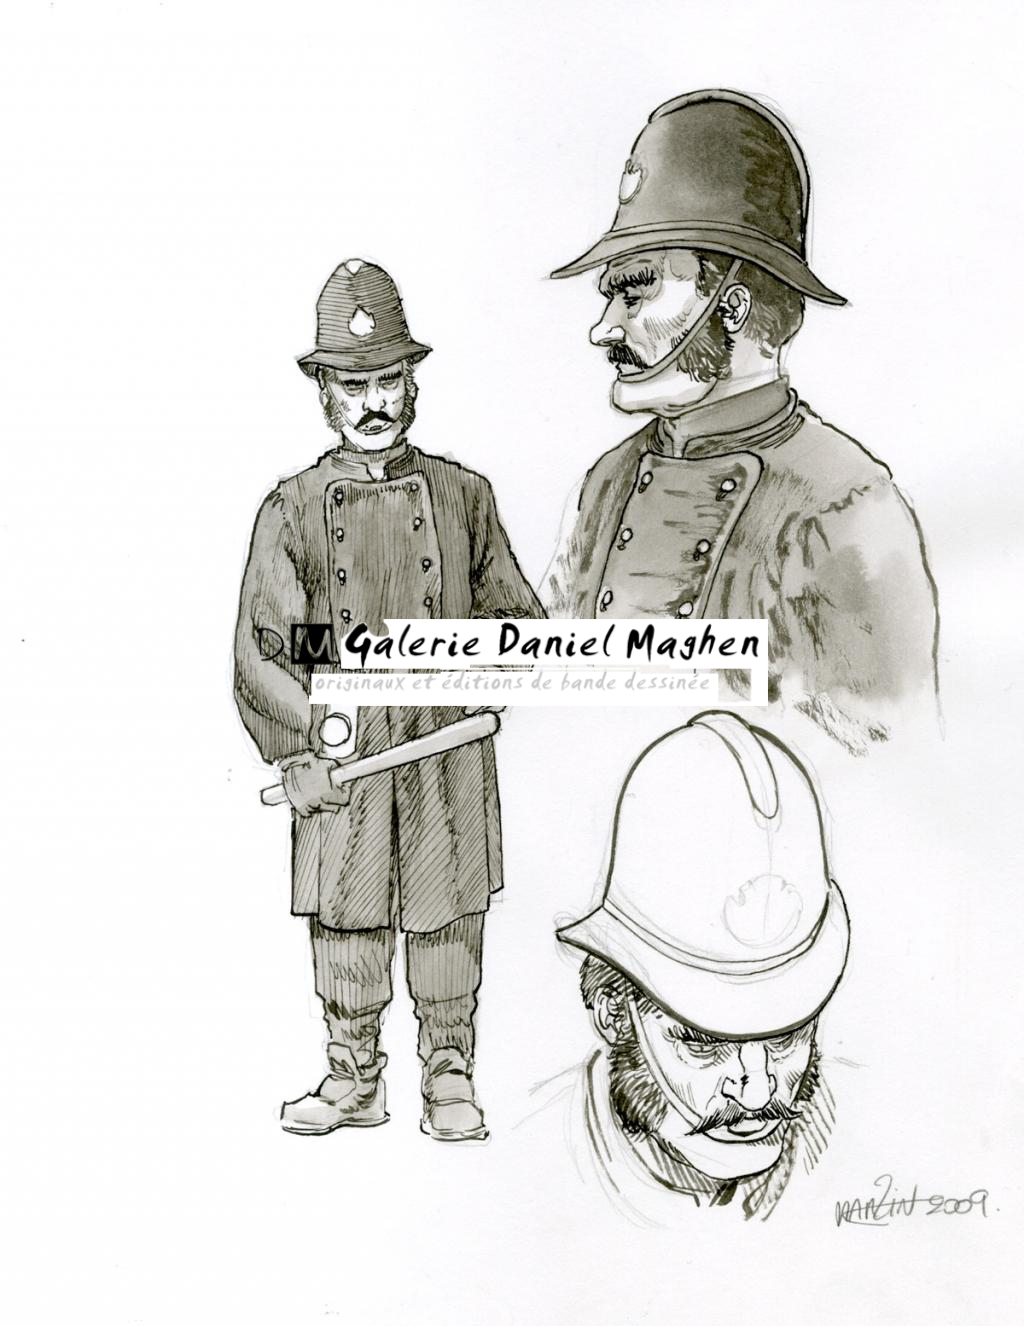 DM Galerie Daniel Maghen
originaux et éditions de bande dessinée
2009.